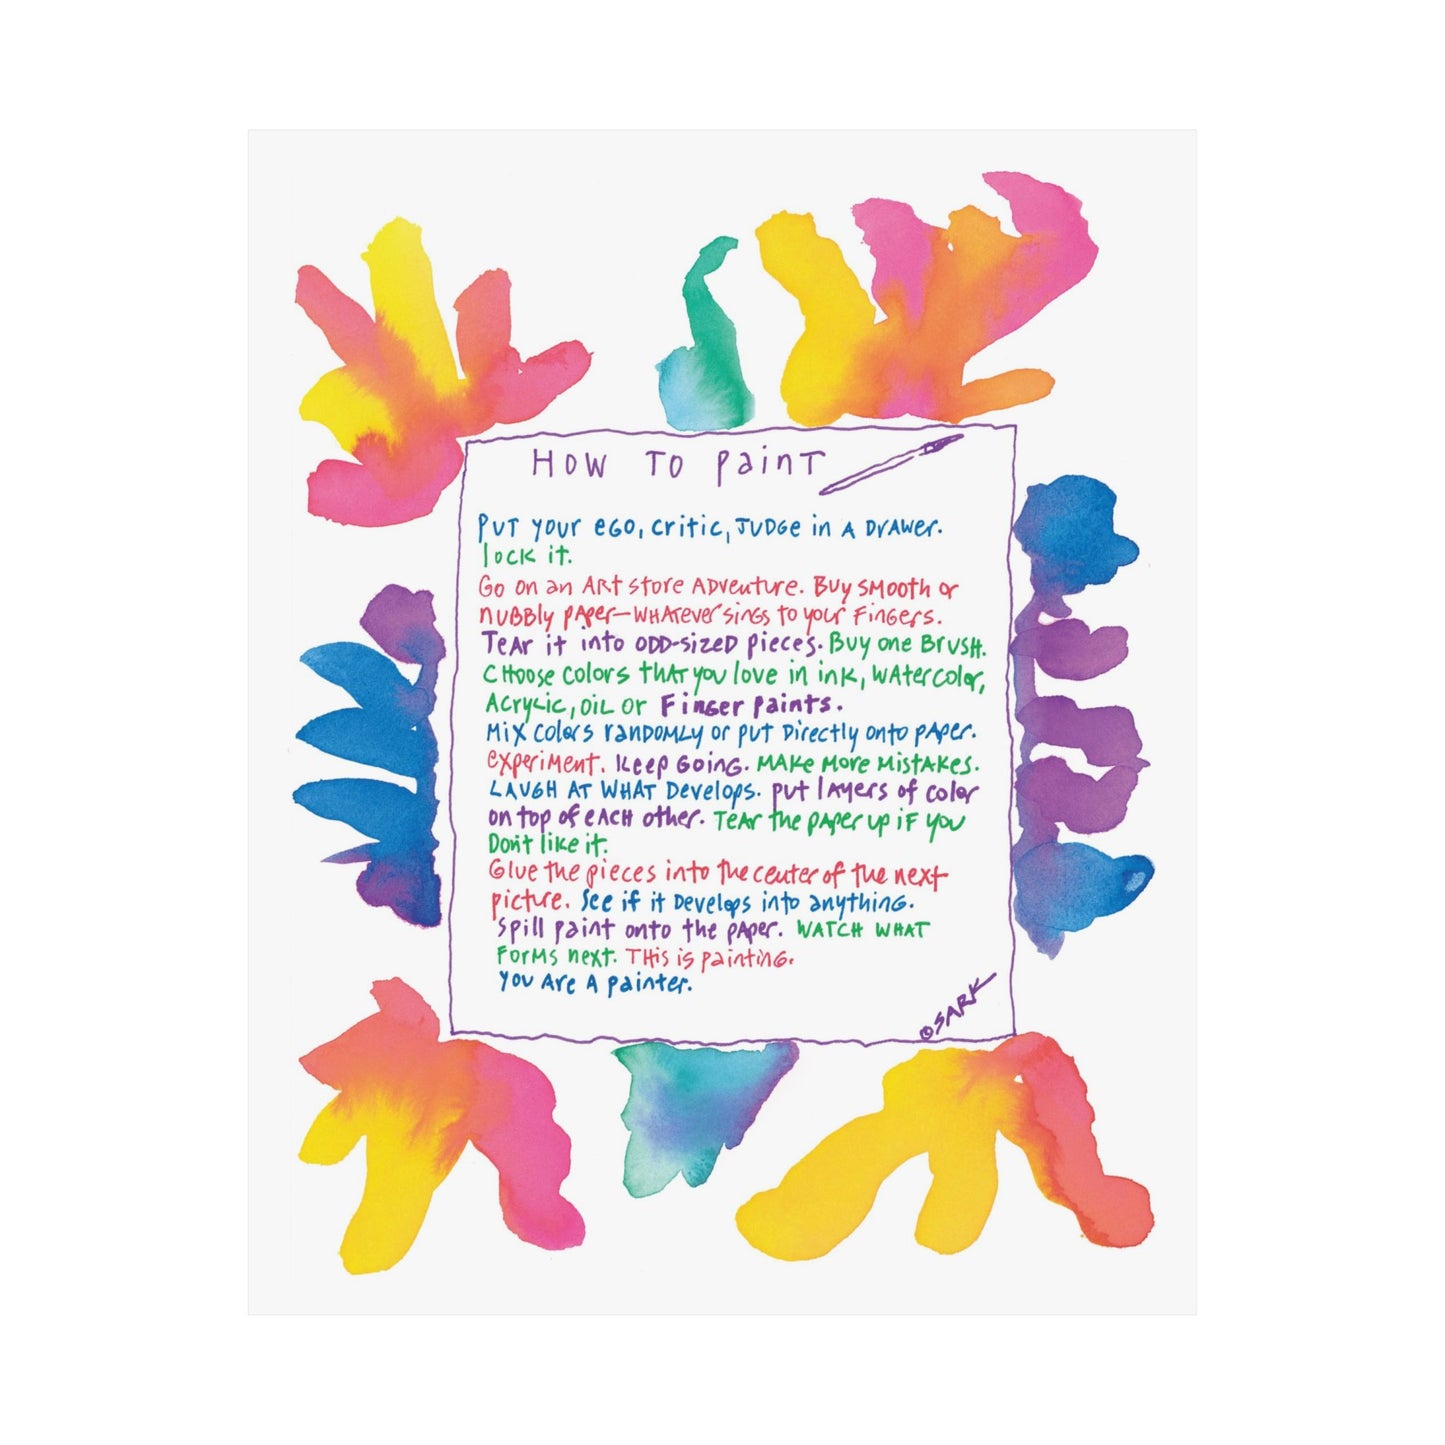 HOW TO PAINT
PUT YOUR EGO, CRITIC, JUDGE IN A DRAWER.
LOCK IT.
GO ON AN ART STORE ADVENTURE. BUY SMOOTH OR
NUBBLY PAPER—WHATEVER SINGS TO YOUR FINGERS.
TEAR IT INTO ODD-SIZED PIECES. BUY ONE BRUSH.
CHOOSE COLORS THAT YOU LOVE IN INK, WATERCOLOR,
ACRYLIC, OIL OR FINGER PAINTS.
MIX COLORS RANDOMLY OR PUT DIRECTLY ONTO PAPER.
EXPERIMENT. KEEP GOING. MAKE MORE MISTAKES.
LAUGH AT WHAT DEVELOPS. PUT LAYERS OF COLOR
ON TOP OF EACH OTHER. TEAR THE PAPER UP IF YOU
DON'T LIKE IT.
GLUE THE PIECES INTO THE CENTER OF THE NEXT
PICTURE. SEE IF IT DEVELOPS INTO ANYTHING.
SPILL PAINT ONTO THE PAPER. WATCH WHAT
FORMS NEXT. THIS IS PAINTING.
YOU ARE A PAINTER.
©SARK